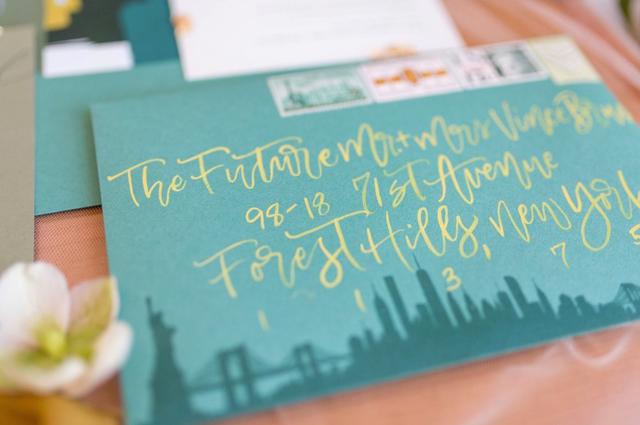 The Future Mr + Mrs Vince
98-18 71st Avenue
Forest Hills, New York
1 1 3 7 5